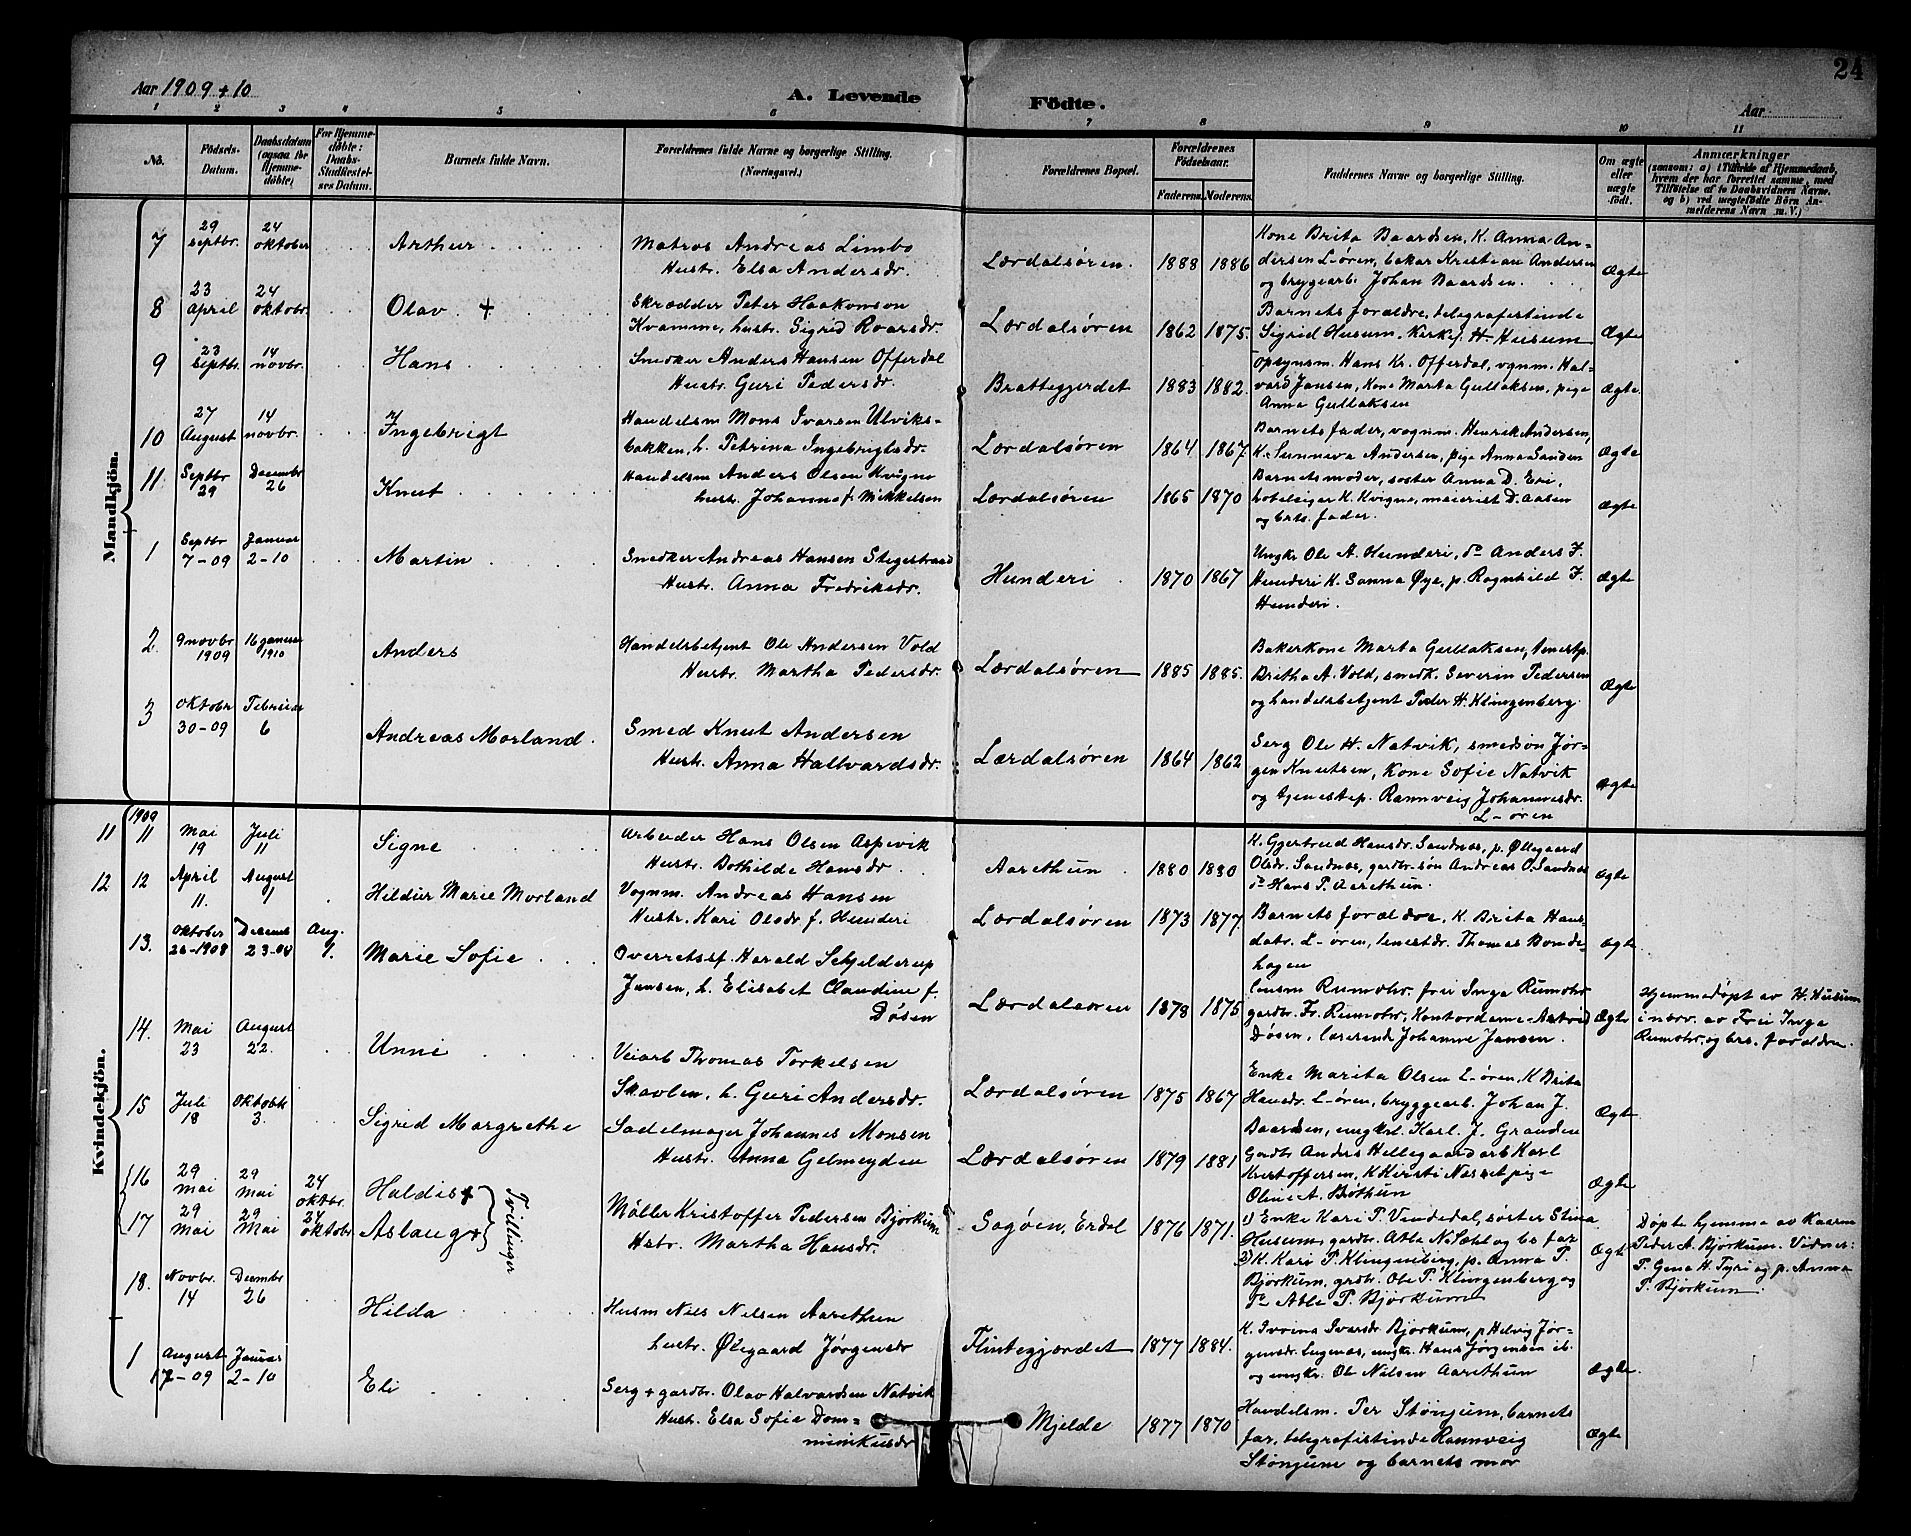 24
Aar 1909 + 10
A. Levende Födte.
Aar
1 2 3 4 5 6 7 8 9 10 11
No.
Födsels-Datum.
Daabsdatum (ogsaa for Hjemme-döbte)
For Hjemme-döbte: Daabs-Stadfæstel-ses Datum.
Barnets fulde Navn.
Forældrenes fulde Navne og borgerlige Stilling. (Næringsvei.)
Forældrenes Bopæl.
Forældrenes Födselsaar.
Faderens. Moderens.
Faddernes Navne og borgerlige Stilling.
Om ægte eller uægte födt.
Anmærkninger
(saasom: a) i Tilfælde af Hjemmedaab,
hvem der har forrettet samme, med
Tilföielse af to Daabsvidners Navne.
og b) ved uægtefödte Börn An-
melderens Navn m. V.)
Mandkjön.
7 29 septbr. 24 oktober Arthur
Matros Andreas Limbo
Hustr. Elsa Andersdr.
Lærdalsøren. 1888 1886
Kone Brita Baardsen, K. Anna An-
dersen L-øren, bakar Kristian Andersen
og bryggearb. Johan Baardsen.
Ægte
8 23 April 24 oktobr. Olav +
Skrædder Peter Haakonson
Kvamme, hustr. Sigrid Roarsdr.
Lærdalsøren 1862 1875.
Barnets forældre, telegrafistinde
Sigrid Husum, Kirkes. H. Husum
Ægte
9 23 septbr. 14 novbr. Hans
Snedker Anders Hansen Offerdal
Hustr. Guri Pedersdr.
Brattegjerdet 1883 1882.
Opsynsm. Hans Kr. Offerdal, vgnm. Hal-
vard Jansen, Kone Marta Gullaksen, pige
Anna Gullaksen
Ægte.
10 27 August 14 novbr. Ingebrigt
Handelsm Mons Ivarsen Ulviks-
bakken, h. Petrina Ingebrigtsdr.
Lærdalsøren 1864 1867.
Barnets fader, vognm. Henrik Andersen,
K. Sunneva Andersen, pige Anna Sanden
Ægte
11 Septbr 29 Decembr 26 Knut
Handelsm Anders Olsen Kvigne
hustr. Johanne f. Mikkelsen
Lærdalsøren 1865 1870
Barnets moder, søster Anna D. Eri,
hotelsiger K. Kvigne, maierist D. Aasen
og brts. fader.
Ægte
1 Septbr 7-09 Januar 2-10 Martin
Snedker Andreas Hansen Stegestrand
Hustr. Anna Fredriksdr.
Hunderi 1870 1867
Ungkr Ole A. Hunderi, do Anders J.
Hunderi K. Sanna Øye, p. Ragnhild J.
Hunderi.
Ægte
2. 9 novbr 1909 16 januar 1910 Anders
Handelsbetjent Ole Andersen Vold
Hustr. Martha Pedersdr.
Lærdalsøren 1885 1885.
Bakerkone Marta Gullaksen, tenestp.
Britha A. Vold, smedk. Severin Pedersen
og handelsbetjent Peder H. Klingenberg.
Ægte
3 Oktober 30-09 Februar 6 Andreas Morland.
Smed Knut Andersen
Hustr. Anna Hallvardsdr.
Lærdalsøren 1864 1862
Serg Ole H. Natvik, smedson Jør-
gen Knutsen, Kone Sofie Natvik
og tjenestep. Rannveig Johannesdr.
L-øren
Ægte
Kvindekjön.
1909
11 11 Mai 19 Juli 11 Signe
Arbeider Hans Olsen Aspevik
Hustr. Bothilde Hansdr.
Aarethun 1880 1880
K. Gjertrud Hansdr. Sandnæs, p. Øllegaard
Olsdr. Sandnæs, gardbr.søn Andreas O. Sandnæs
do Hans P. Aarethun.
Ægte
12 12 April 11. August 1 Hildur Marie Morland
Vognm. Andreas Hansen
Hustr. Kari Olsdr f. Hunderi
Lærdalsøren 1873 1877.
Barnets forældre, K. Brita Hans-
datr. L-øren, tenestdr. Thomas Bonde-
hagen
Ægte
13. Oktober 26-1908 Decemb 23-08 Aug. 7. Marie Sofie
Overretssf. Harald Schjelderup
Jansen, h. Elisabet Claudine f.
Døsen
Lærdalsøren 1878 1875
Lensm Rumohr. frii Inga Rumohr
gardbr. Fr. Rumohr, Kontordame Astrid
Døsen, lærerinde Johanne Jansen.
Ægte
Hjemmedøpt av H. Husum
i nærv. av Frii Inga
Rumohr. og brs. forældre.
14. Mai 23 August 22. Unni
Veiarb Thomas Torkelsen
Skavlen, h. Guri Andersdr.
Lærdalsøren 1875 1867
Enke Marita Olsen L-øren, K Brita
Hansdr. L-øren, bryggearb. Johan J.
Baardsen, ungkrl. Karl. J. Grauden
Ægte
15 Juli 18 Oktobr 3. Sigrid Margrethe
Sadelmager Johannes Monsen
Hustr. Anna Gelmeyden
Lærdalsøren 1879 1881
Gardbr Anders Hellegaard arb Karl
Kristoffersen, K Kirsti Næsset pige
Oline A. Bøthun
Ægte
16 29 Mai 29 Mai 24 oktbr. Haldis +
17 29 Mai 29 Mai 24 oktobr Aslaug +
Tvillinger
Møller Kristoffer Pedersen Bjørkum
Hstr. Martha Hansdr.
Sagøen, Erdal 1876 1871.
1) Enke Kari P. Vindedal, søster Stina
Husum, gardbr. Atle N. Sæhl og bs far
2) K. Kari P. Klingenberg, p. Anna P.
Bjørkum, grdbr. Ole P. Klingenberg og
do Atle P. Bjørkum
Ægte
Døpte hjemme av Kaarm
Peder A. Bjørkum. Vidner:
P. Gina H. Tyri og p. Anna
P. Bjørkum.
18. Novbr. 14 Decembr 26 Hilda
Husm Nils Nilsen Aarethun
hustr. Ølegaard Jørgensdr
Flintegjærdet 1877 1884.
K. Ivrina Ivarsdr Bjørkum, p Helvig Jør-
gensdr. Lugnæs, ungkr. Hans Jørgensen ib.
og ungkr. Ole Nilsen Aarethun
Ægte.
1 August 17-09 Januar 2-10 Eli
Serg + gardbr. Olav Halvardsen Natvik
Hustr. Elsa Sofie Dom-
minikusdr
Mjelde 1877 1870
Handelsm. Per Stønjum, barnets
far, telegrafistinde Rannveig
Stønjum og barnets mor
Ægte